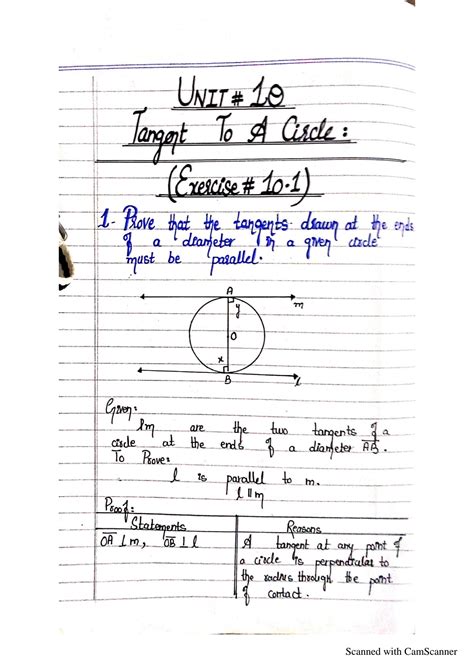 UNIT # 10
Tangent To A Circle:
(Exercise # 10.1)
1- Prove that the tangents drawn at the ends
of a diameter in a given circle
must be parallel.
A
m
y
O
x
B
l
Given:
lm are the two tangents of a
circle at the ends of a diameter AB.
To Prove:
l is parallel to m.
l || m
Proof:
Statements
Reasons
OA ⊥ m, OB ⊥ l
A tangent at any point of
a circle is perpendicular to
the radius through the point
of contact.
Scanned with CamScanner